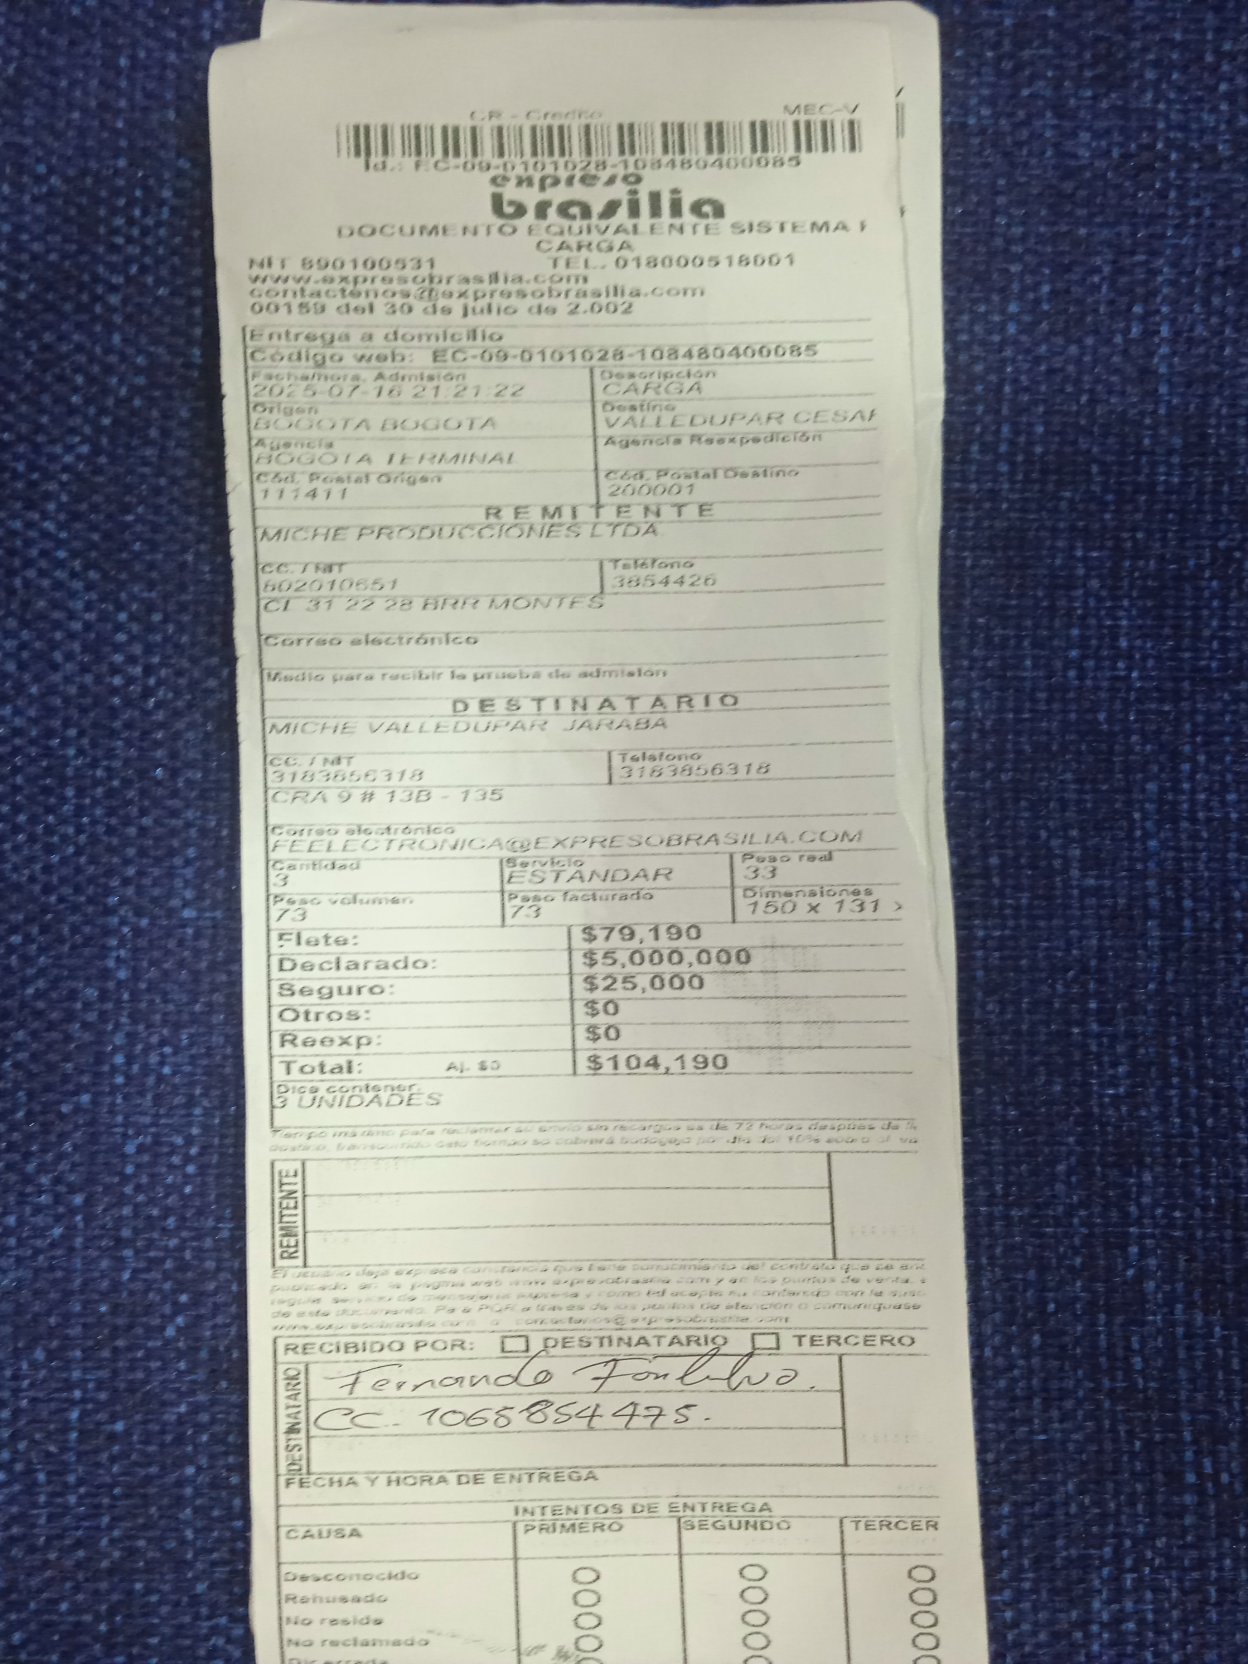 CR - Credito MEC-V
Id.: EC-09-0101028-108480400085
expreso
brasilia
DOCUMENTO EQUIVALENTE SISTEMA
CARGA
NIT 890100531 TEL. 018000518001
www.expresobrasilia.com
contactenos@expresobrasilia.com
00159 del 30 de julio de 2.002
Entrega a domicilio
Código web: EC-09-0101028-108480400085
Fecha/hora, Admisión Descripción
2025-07-16 21:21:22 CARGA
Origen Destino
BOGOTA BOGOTA VALLEDUPAR CESAR
Agencia Agencia Reexpedición
BOGOTA TERMINAL
Cód. Postal Origen Cód. Postal Destino
111411 200001
REMITENTE
MICHE PRODUCCIONES LTDA
CC. / NIT Teléfono
802010651 3854426
CL 31 22 28 BRR MONTES
Correo electrónico
Medio para recibir la prueba de admisión
DESTINATARIO
MICHE VALLEDUPAR JARABA
CC. / NIT Telefono
3183856318 3183856318
CRA 9 # 13B - 135
Correo electrónico
FEELECTRONICA@EXPRESOBRASILIA.COM
Cantidad Servicio Peso real
3 ESTANDAR 33
Peso volumen Peso facturado Dimensiones
73 73 150 x 131 x
Flete: $79,190
Declarado: $5,000,000
Seguro: $25,000
Otros: $0
Reexp: $0
Total: Aj. $0 $104,190
Dice contener:
3 UNIDADES
Tiempo máximo para reclamar su envío sin recargos es de 72 horas después de
destino, transcurrido este tiempo se cobrará bodegaje por día del 10% sobre el
REMITENTE
El usuario deja expresa constancia que tiene conocimiento del contrato que se
publicado en la página web www.expresobrasilia.com y en los puntos de venta,
regula servicio de mensajería expresa y como tal acepta su contenido con la
de este documento. Para PQR a través de los puntos de atención o comuníquese
www.expresobrasilia.com o contactenos@expresobrasilia.com
RECIBIDO POR: DESTINATARIO TERCERO
DESTINATARIO
Fernando Fontalvo.
CC. 1065854475.
FECHA Y HORA DE ENTREGA
INTENTOS DE ENTREGA
CAUSA PRIMERO SEGUNDO TERCER
Desconocido
Rehusado
No reside
No reclamado
Dir errada